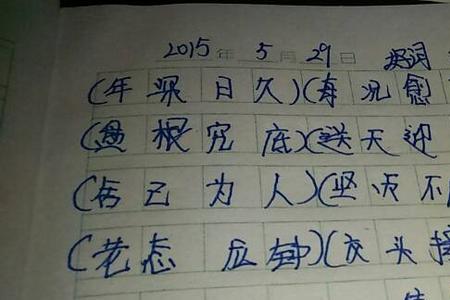 2015年5月29日 好词
(年深日久)(每况愈
(盘根究底)(送天迎
(舍己为人)(坚贞不
(老态龙钟)(交头接